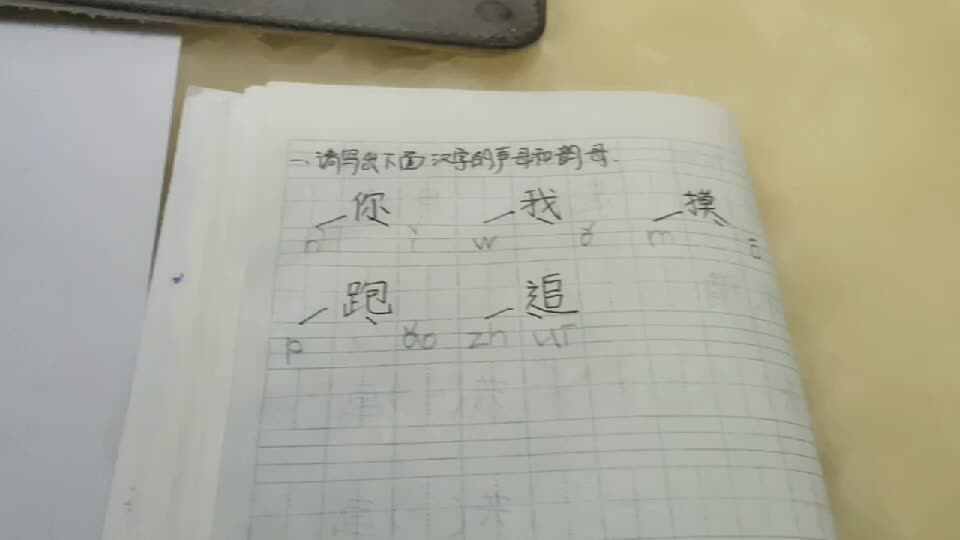 一、请写出下面汉字的声母和韵母.
你 我 摸
n ǐ w ǒ m ō
跑 追
p ǎo zh uī